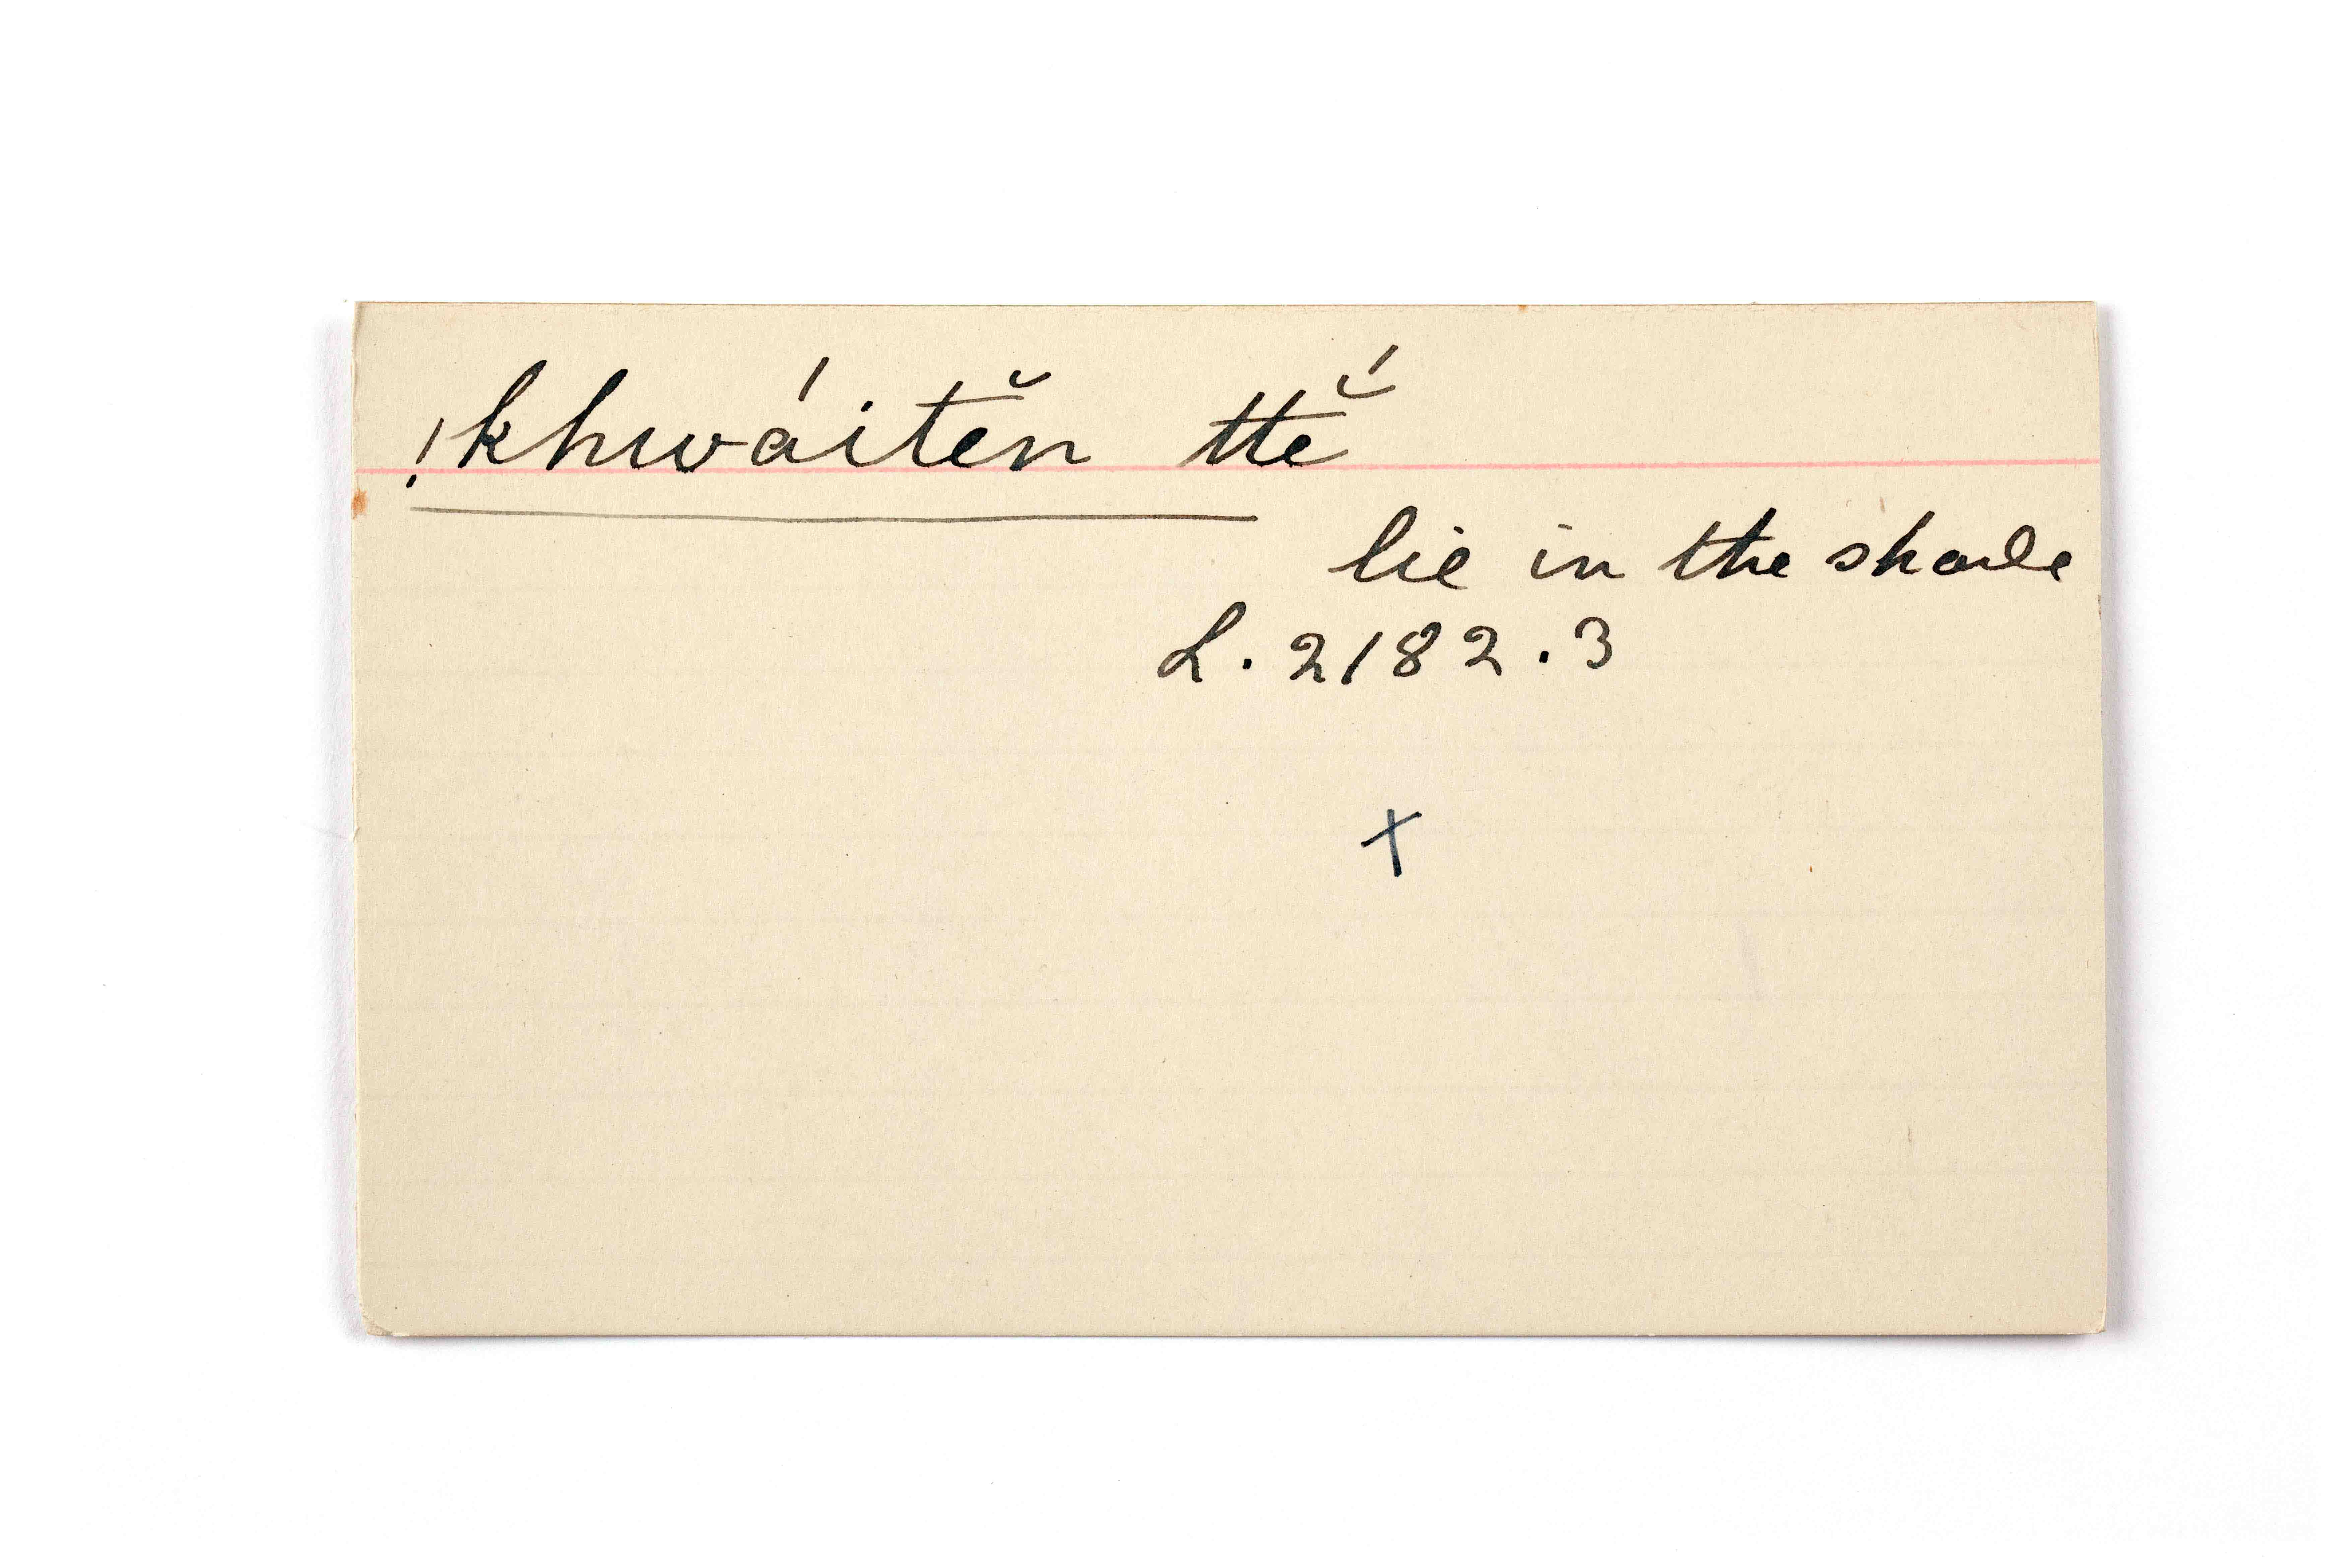 !khwáitĕn ttĕ́
lie in the shade
L. 2182.3
x